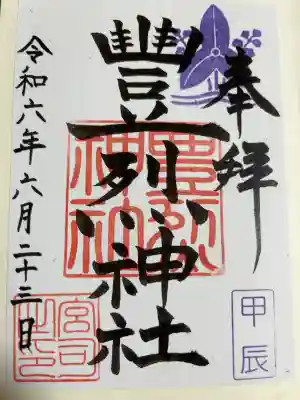 奉拝
甲辰
豐烈神社
豐烈
神社
令和六年六月二十三日
宮司
之印